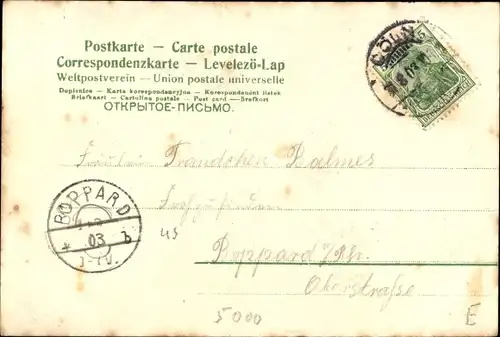 Postkarte — Carte postale
Correspondenzkarte — Levelezö-Lap
Weltpostverein — Union postale universelle
Dopisnice — Karta korespondencyjna — Korespondenční listek
Briefkaart — Cartolina postale — Post card — Brefkort
ОТКРЫТОЕ-ПИСЬМО.
CÖLN
Fräulein Franzchen Kalmes
Boppard a/Rh.
Oberstraße
BOPPARD
03
* b
45
5000
E